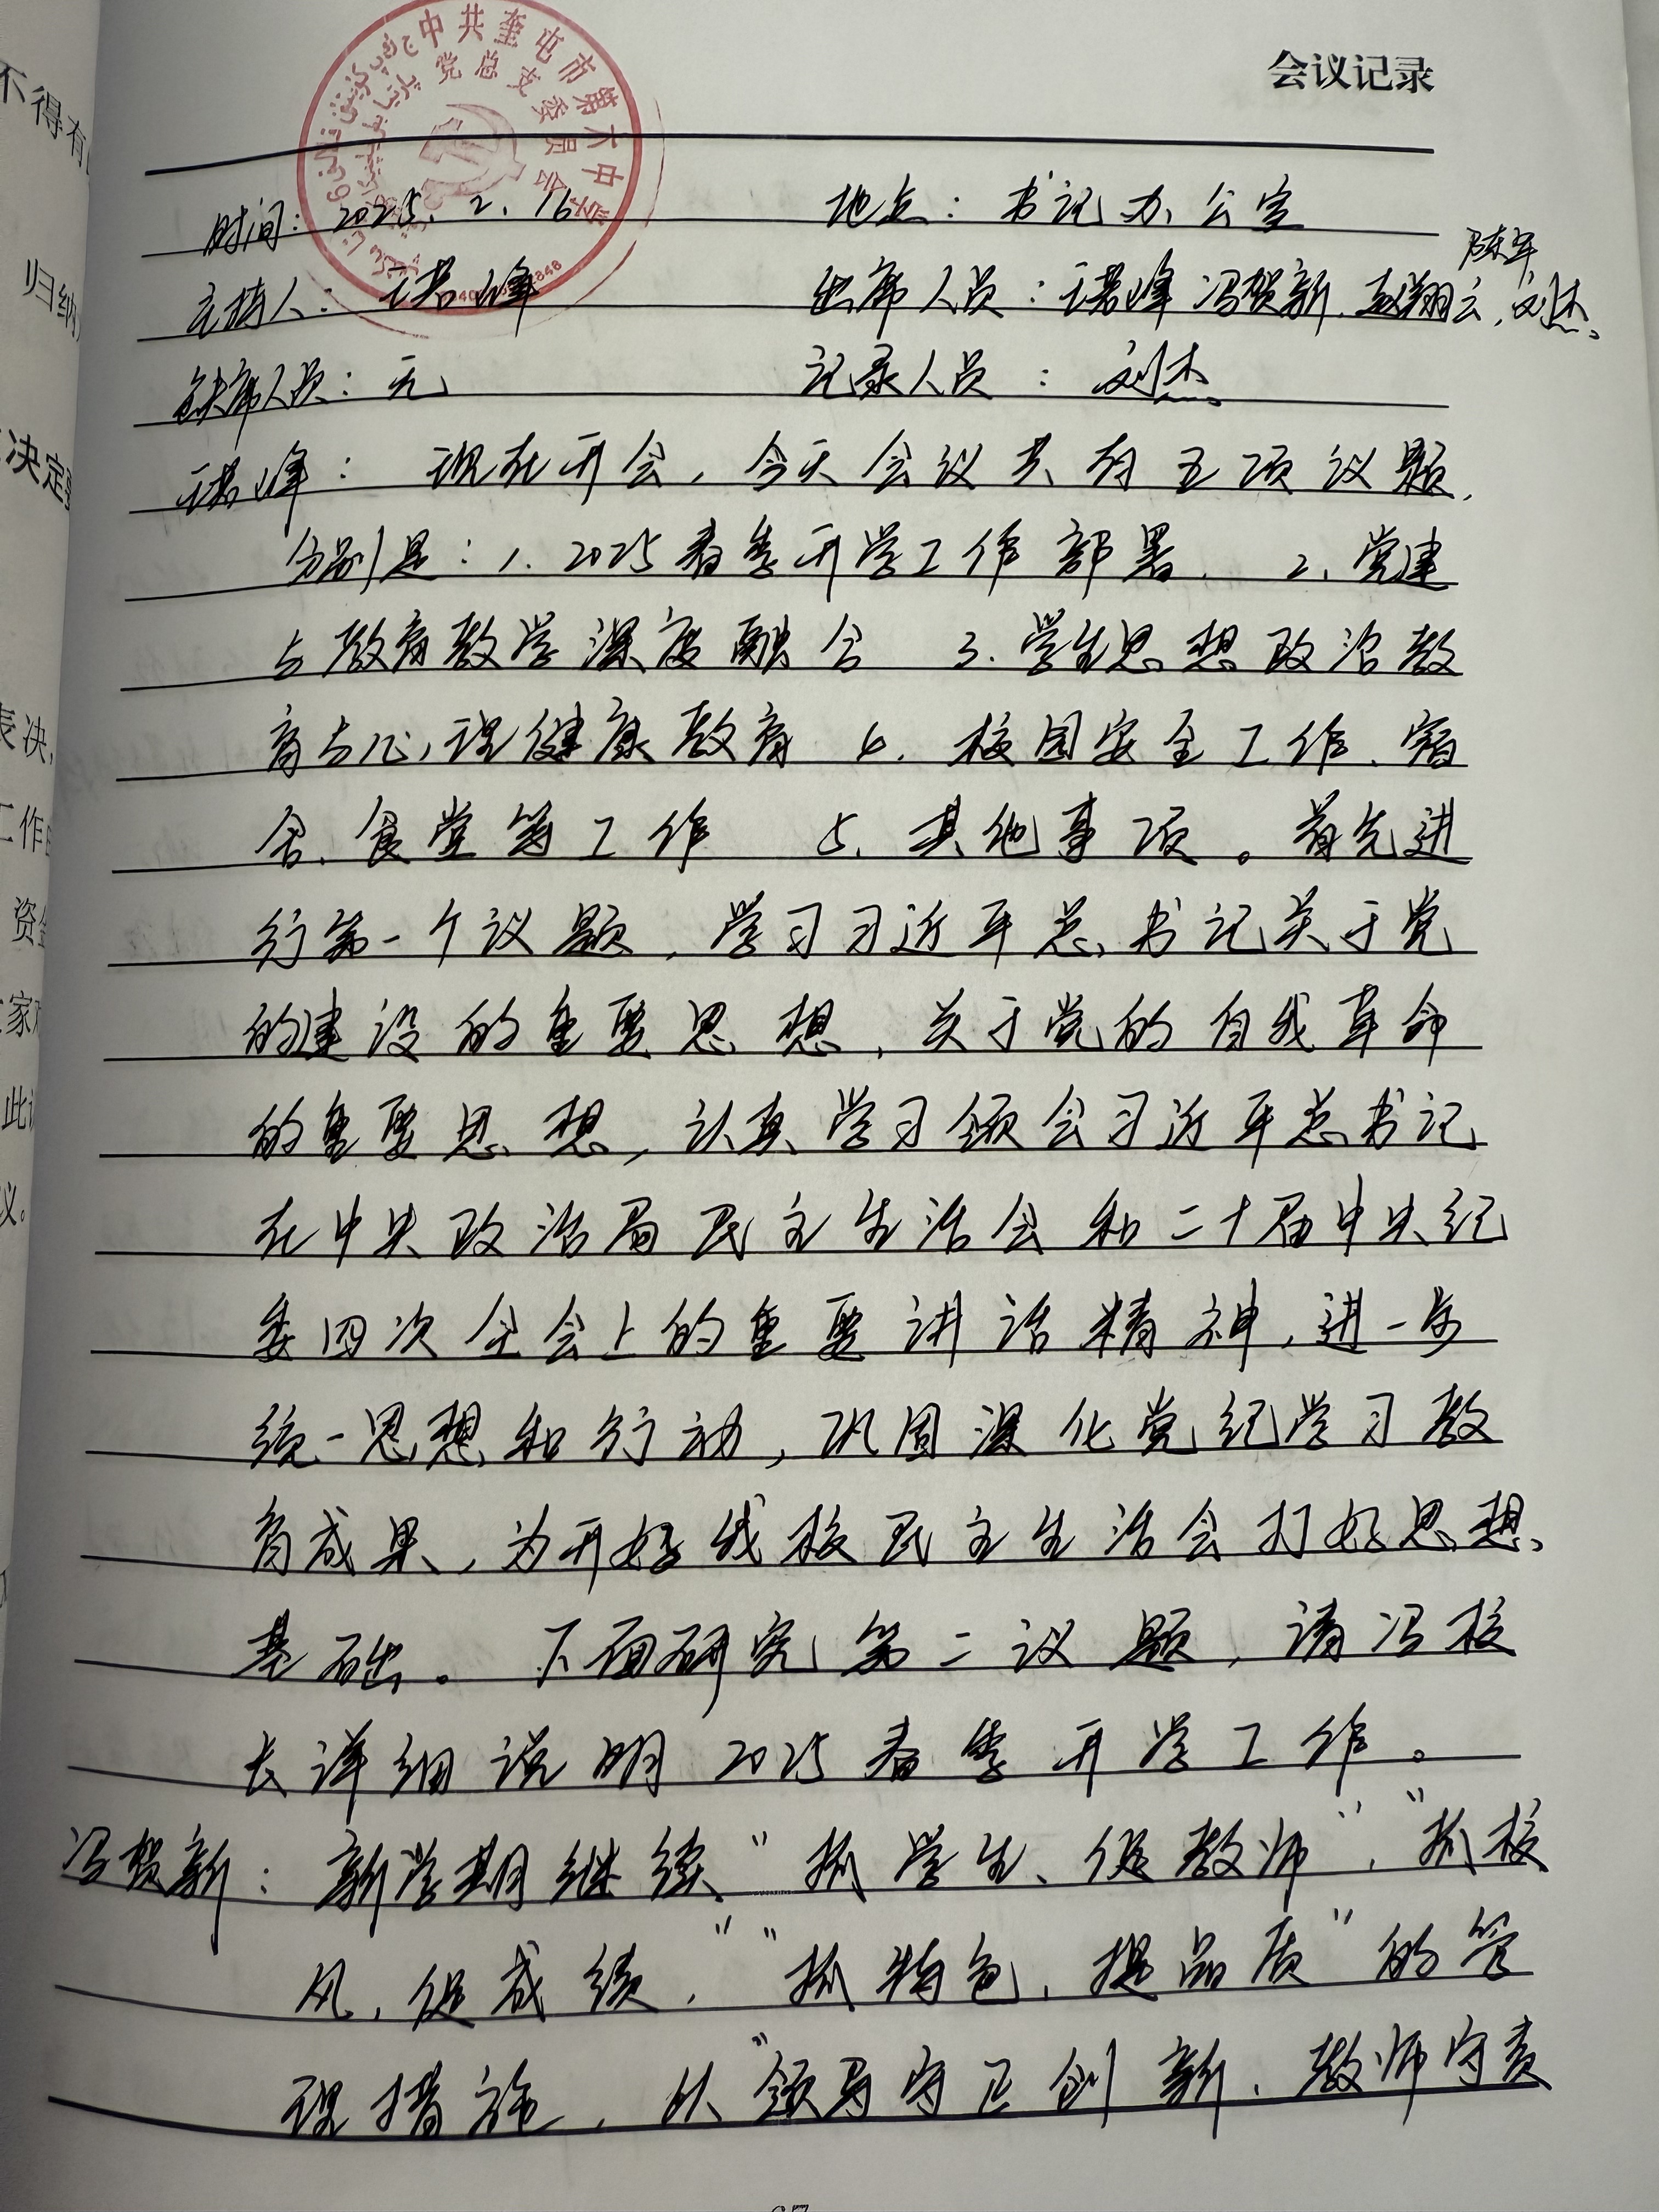 会议记录
中共奎屯市第六中学
党总支委员会
时间：2025.2.16 地点：书记办公室
陈军
主持人：王若峰 出席人员：王若峰 冯贺新、赵翔云、刘杰。
缺席人员：无 记录人员：刘杰
王若峰：现在开会，今天会议共有五项议题，
分别是：1.2025春季开学工作部署、2、党建
与教育教学深度融合 3.学生思想政治教
育与心理健康教育 4.校园安全工作、宿
舍、食堂等工作 5、其他事项。首先进
行第一个议题，学习习近平总书记关于党
的建设的重要思想，关于党的自我革命
的重要思想，认真学习领会习近平总书记
在中央政治局民主生活会和二十届中央纪
委四次全会上的重要讲话精神，进一步
统一思想和行动，巩固深化党纪学习教
育成果，为开好我校民主生活会打好思想
基础。下面研究第二议题，请冯校
长详细说明2025春季开学工作。
冯贺新：新学期继续“抓学生、促教师”，“抓校
风，促成绩，”“抓特色，提品质”的管
理措施，从“领导守正创新、教师守责
不得有
归纳
决定
表决，
工作
资金
家
此
议。